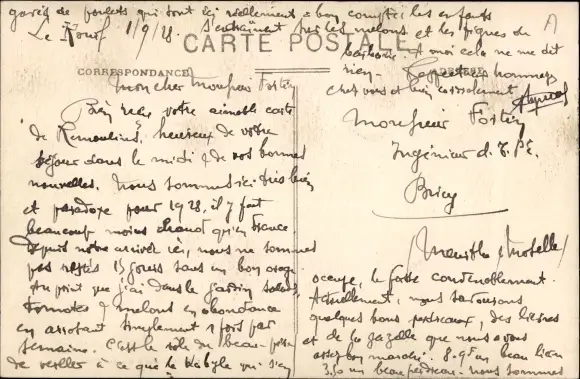 gavés de poulets qui sont ici réellement à bon compte; les enfants
Le Kouif 1/9/28. s'entraînent sur les melons et les figues de
CARTE POSTALE
barbarie. A moi cela ne me dit
CORRESPONDANCE
ADRESSE
rien.
chez vous et bien cordialement
Mon cher Monsieur Fortin
Bien reçu votre aimable carte
de Remoulins, heureux de votre
séjour dans le midi & de vos bonnes
nouvelles. Nous sommes ici très bien
et paradoxe pour 1928, il y fait
beaucoup moins chaud qu'en France.
Depuis notre arrivée ici, nous ne sommes
pas restés 15 jours sans un bon orage.
Au point que j'ai dans le jardin salades,
tomates & melons en abondance
en arrosant simplement 1 fois par
semaine. C'est le rôle du beau-père
de veiller à ce que le Kabyle qui s'en
Monsieur Fortin
Ingénieur d. T. P.E.
Briey
Meurthe & Moselle
occupe, le fasse
Actuellement, nous savourons
quelques bons perdreaux, des lièvres
et de la gazelle que nous avons
assez bon marché. 8.95 un beau lièvre
3,50 un beau perdreau. nous sommes